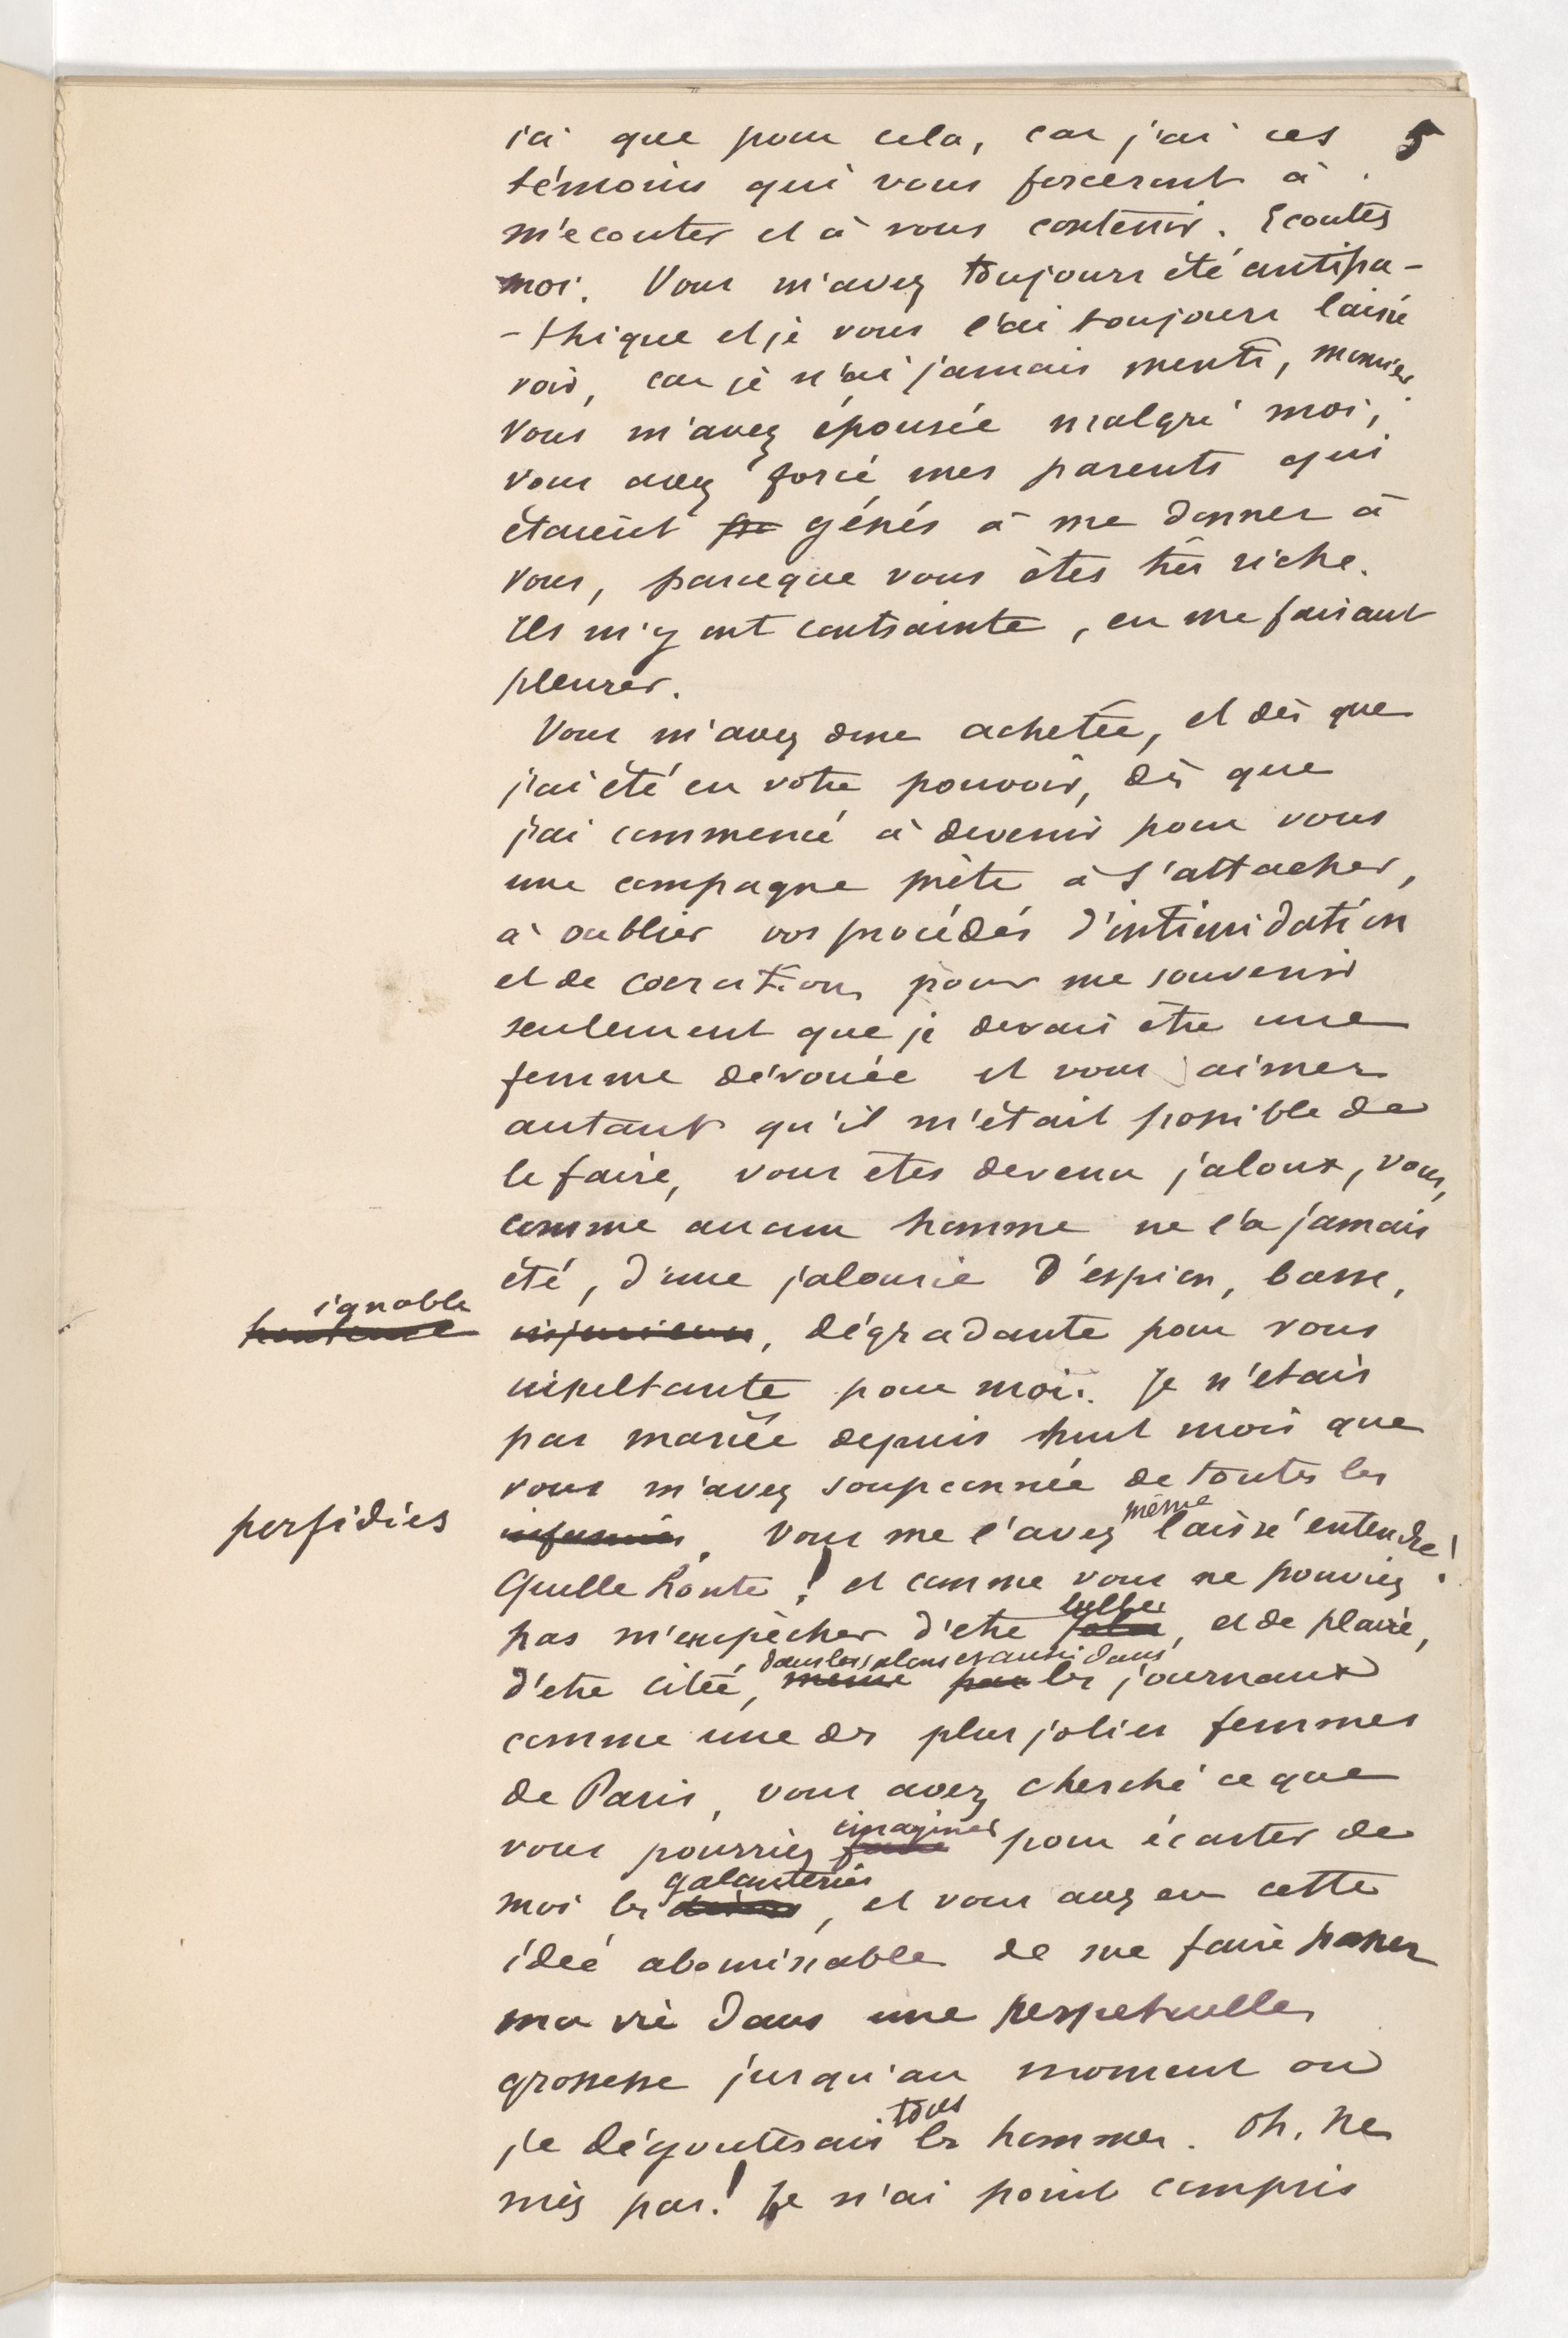 5
ici que pour cela, car j'ai ces
témoins qui vous forceront à
m'ecouter et à vous contenir. Ecoutez
moi. Vous m'avez toujours été antipa-
-thique et je vous l'ai toujours laissé
voir, car je n'ai jamais menti, monsieur.
Vous m'avez épousée malgré moi,
vous avez forcé mes parents qui
étaient génés à me donner à
vous, parceque vous êtes très riche.
Ils m'y ont contrainte, en me faisant
pleurer.
Vous m'avez donc achetée, et dès que
j'ai été en votre pouvoir, dès que
j'ai commencé à devenir pour vous
une compagne prête à s'attacher,
à oublier vos procédés d'intimidation
et de coercition pour me souvenir
seulement que je devais être une
femme dévouée et vous aimer
autant qu'il m'était possible de
le faire, vous êtes devenu jaloux, vous,
comme aucun homme ne l'a jamais
été, d'une jalousie d'espion, basse,
ignoble
honteuse injurieuse, dégradante pour vous
insultante pour moi. Je n'etais
pas mariée depuis huit mois que
vous m'avez soupçonnée de toutes les
même
perfidies infamies, Vous me l'avez laissé entendre!
Quelle honte! et comme vous ne pouviez
belle
pas m'empêcher d'etre jolie, et de plaire,
dans les salons et aussi dans
d'etre citée, même par les journaux
comme une des plus jolies femmes
de Paris, vous avez cherché ce que
imaginer
vous pourriez faire pour écarter de
galanteries
moi les désirs, et vous avez eu cette
idée abominable de me faire passer
ma vie dans une perpetuelle
grossesse jusqu'au moment où
tous
je dégouterais les hommes. Oh, ne
niez pas! Je n'ai point compris